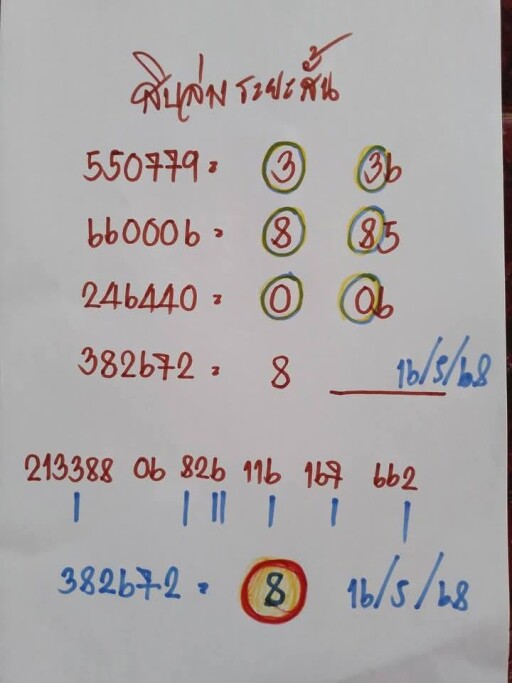 สิบล่ม ระยะสั้น
550779 = 3 36
660006 = 8 85
246440 = 0 06
382672 = 8 16/5/68
213388 06 826 116 167 662
382672 = 8 16/5/68